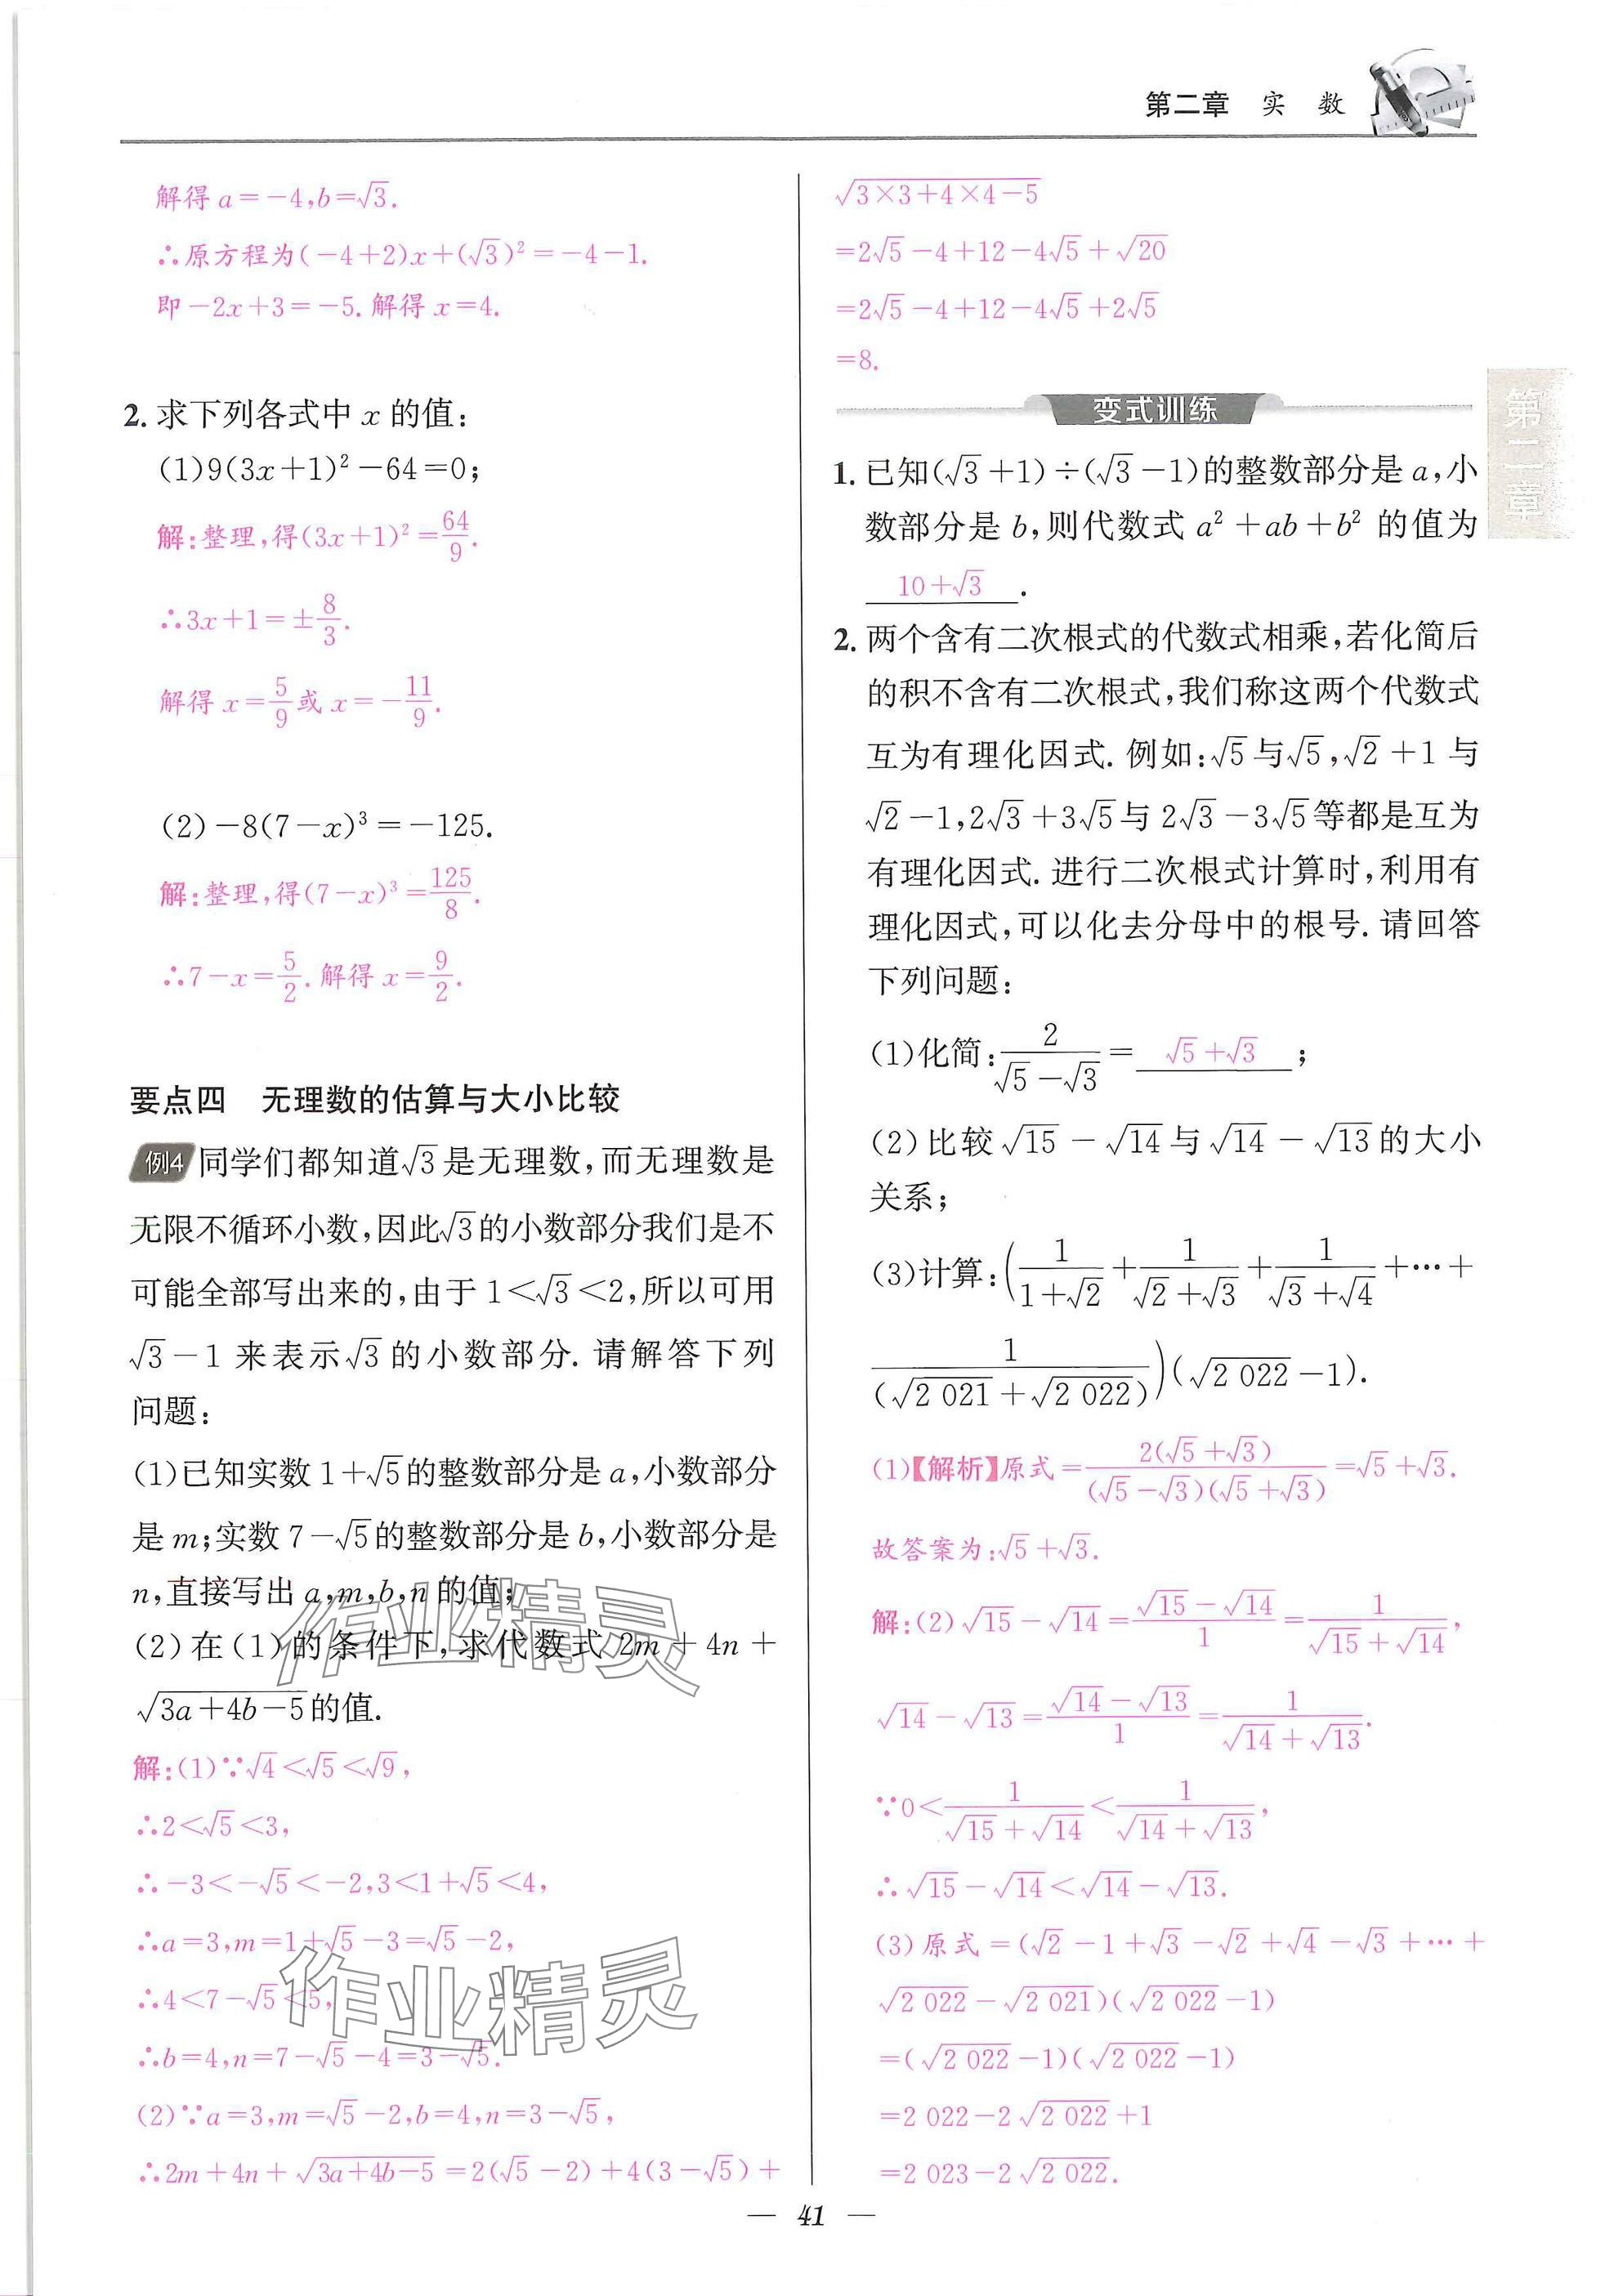 第二章 实 数
解得 a=-4,b=√3.
∴原方程为(-4+2)x+(√3)²=-4-1.
即-2x+3=-5.解得 x=4.
2. 求下列各式中 x 的值:
(1)9(3x+1)²-64=0;
解:整理,得(3x+1)²=64/9.
∴3x+1=±8/3.
解得 x=5/9或 x=-11/9.
(2)-8(7-x)³=-125.
解:整理,得(7-x)³=125/8.
∴7-x=5/2.解得 x=9/2.
要点四 无理数的估算与大小比较
例4 同学们都知道√3是无理数,而无理数是
无限不循环小数,因此√3的小数部分我们是不
可能全部写出来的,由于 1<√3<2,所以可用
√3-1 来表示√3的小数部分.请解答下列
问题:
(1)已知实数 1+√5的整数部分是 a,小数部分
是 m;实数 7-√5的整数部分是 b,小数部分是
n,直接写出 a,m,b,n 的值;
(2)在(1)的条件下,求代数式 2m+4n+
√(3a+4b-5)的值.
解:(1)∵√4<√5<√9,
∴2<√5<3,
∴-3<-√5<-2,3<1+√5<4,
∴a=3,m=1+√5-3=√5-2,
∴4<7-√5<5,
∴b=4,n=7-√5-4=3-√5.
(2)∵a=3,m=√5-2,b=4,n=3-√5,
∴2m+4n+√(3a+4b-5)=2(√5-2)+4(3-√5)+
√(3×3+4×4-5)
=2√5-4+12-4√5+√20
=2√5-4+12-4√5+2√5
=8.
变式训练
1. 已知(√3+1)÷(√3-1)的整数部分是 a,小
数部分是 b,则代数式 a²+ab+b² 的值为
10+√3.
2. 两个含有二次根式的代数式相乘,若化简后
的积不含有二次根式,我们称这两个代数式
互为有理化因式.例如:√5与√5,√2+1 与
√2-1,2√3+3√5与 2√3-3√5等都是互为
有理化因式.进行二次根式计算时,利用有
理化因式,可以化去分母中的根号.请回答
下列问题:
(1)化简:2/(√5-√3)= √5+√3 ;
(2)比较√15-√14与√14-√13的大小
关系;
(3)计算:(1/(1+√2)+1/(√2+√3)+1/(√3+√4)+…+
1/(√2 021+√2 022))(√2 022-1).
(1)【解析】原式=2(√5+√3)/((√5-√3)(√5+√3))=√5+√3.
故答案为:√5+√3.
解:(2)√15-√14=(√15-√14)/1=1/(√15+√14),
√14-√13=(√14-√13)/1=1/(√14+√13).
∵0<1/(√15+√14)<1/(√14+√13),
∴√15-√14<√14-√13.
(3)原式=(√2-1+√3-√2+√4-√3+…+
√2 022-√2 021)(√2 022-1)
=(√2 022-1)(√2 022-1)
=2 022-2√2 022+1
=2 023-2√2 022.
第二章
作业精灵
作业精灵
— 41 —